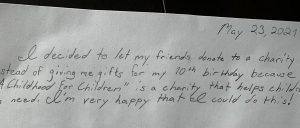 May 23, 2021
I decided to let my friends donate to a charity
stead of giving me gifts for my 10th birthday because
A Childhood for Children" is a charity that helps childr
need. I'm very happy that I could do this!